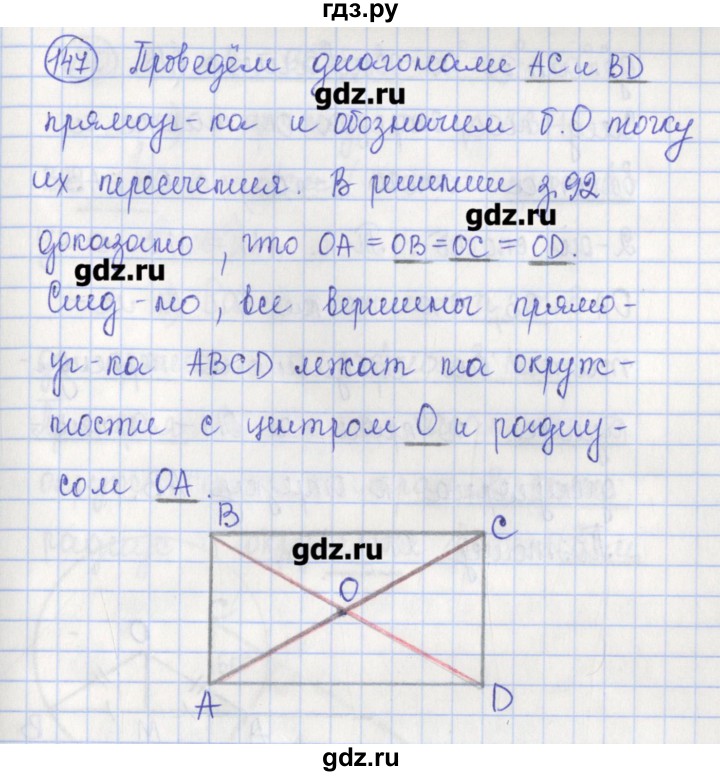 гдз.ру
147 Проведём диагонали AC и BD
gdz.ru
прямоуг-ка и обозначим б. O точку
их пересечения. В решении з. 92
gdz.ru
доказано, что OA = OB = OC = OD.
gdz.ru
След-но, все вершины прямо-
уг-ка ABCD лежат на окруж-
ности с центром O и радиу-
сом OA.
B
C
gdz.ru
O
A
D
gdz.ru